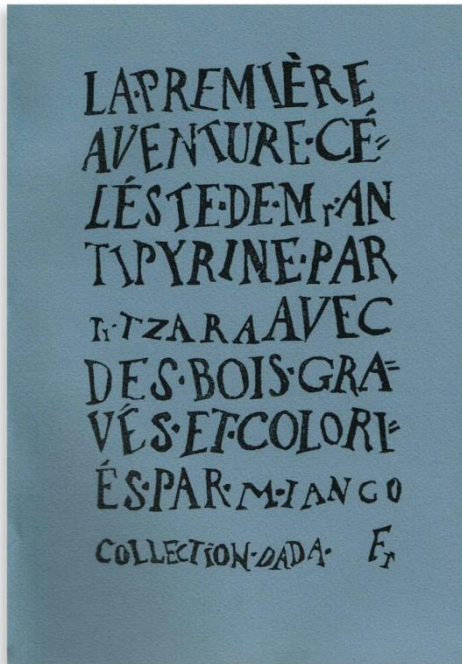 LA·PREMIÈRE
AVENTURE·CÉ=
LÉSTE·DE·Mr·AN
TIPYRINE·PAR
Tr·TZARA AVEC
DES·BOIS·GRA=
VÉS·ET·COLORI=
ÉS·PAR·M·IANCO
COLLECTION·DADA· Fr